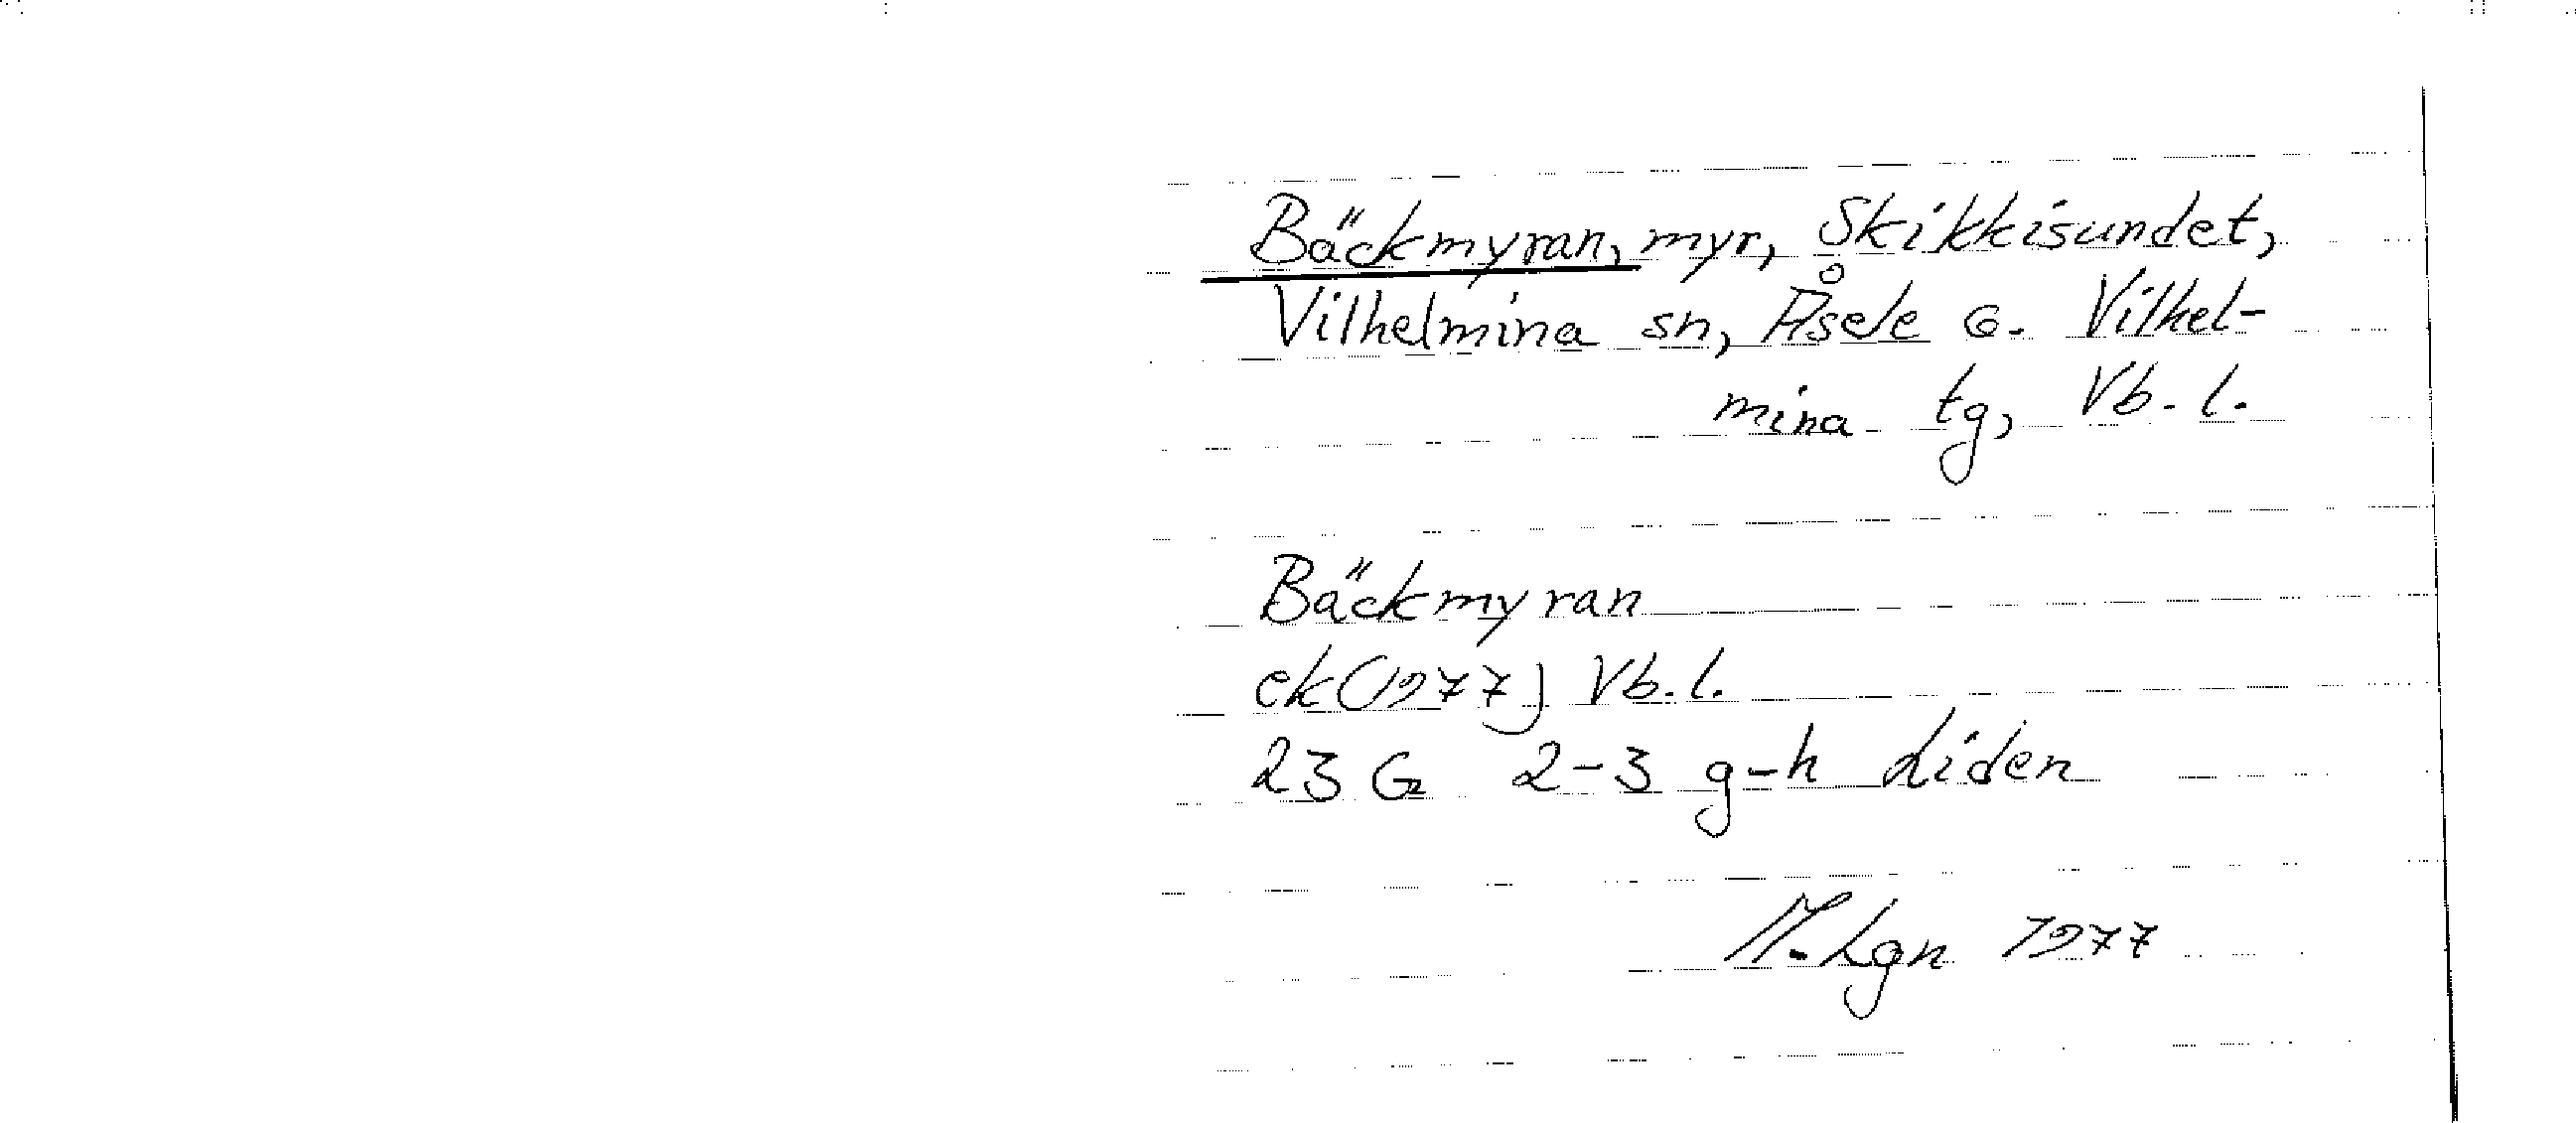 Bäckmyran, myr, Skikkisundet,
Vilhelmina sn, Åsele o. Vilhel-
mina tg, Vb. l.
Bäckmyran
ek (1977) Vb. l.
23 G 2-3 g-h Liden
M. Lgn 1977